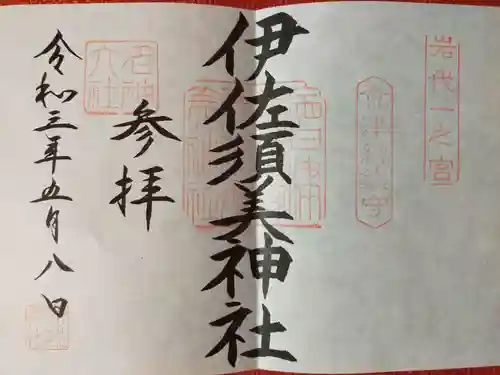 岩代一之宮
會津総鎮守
伊佐須美神社
参拝
名神大社
令和三年五月八日